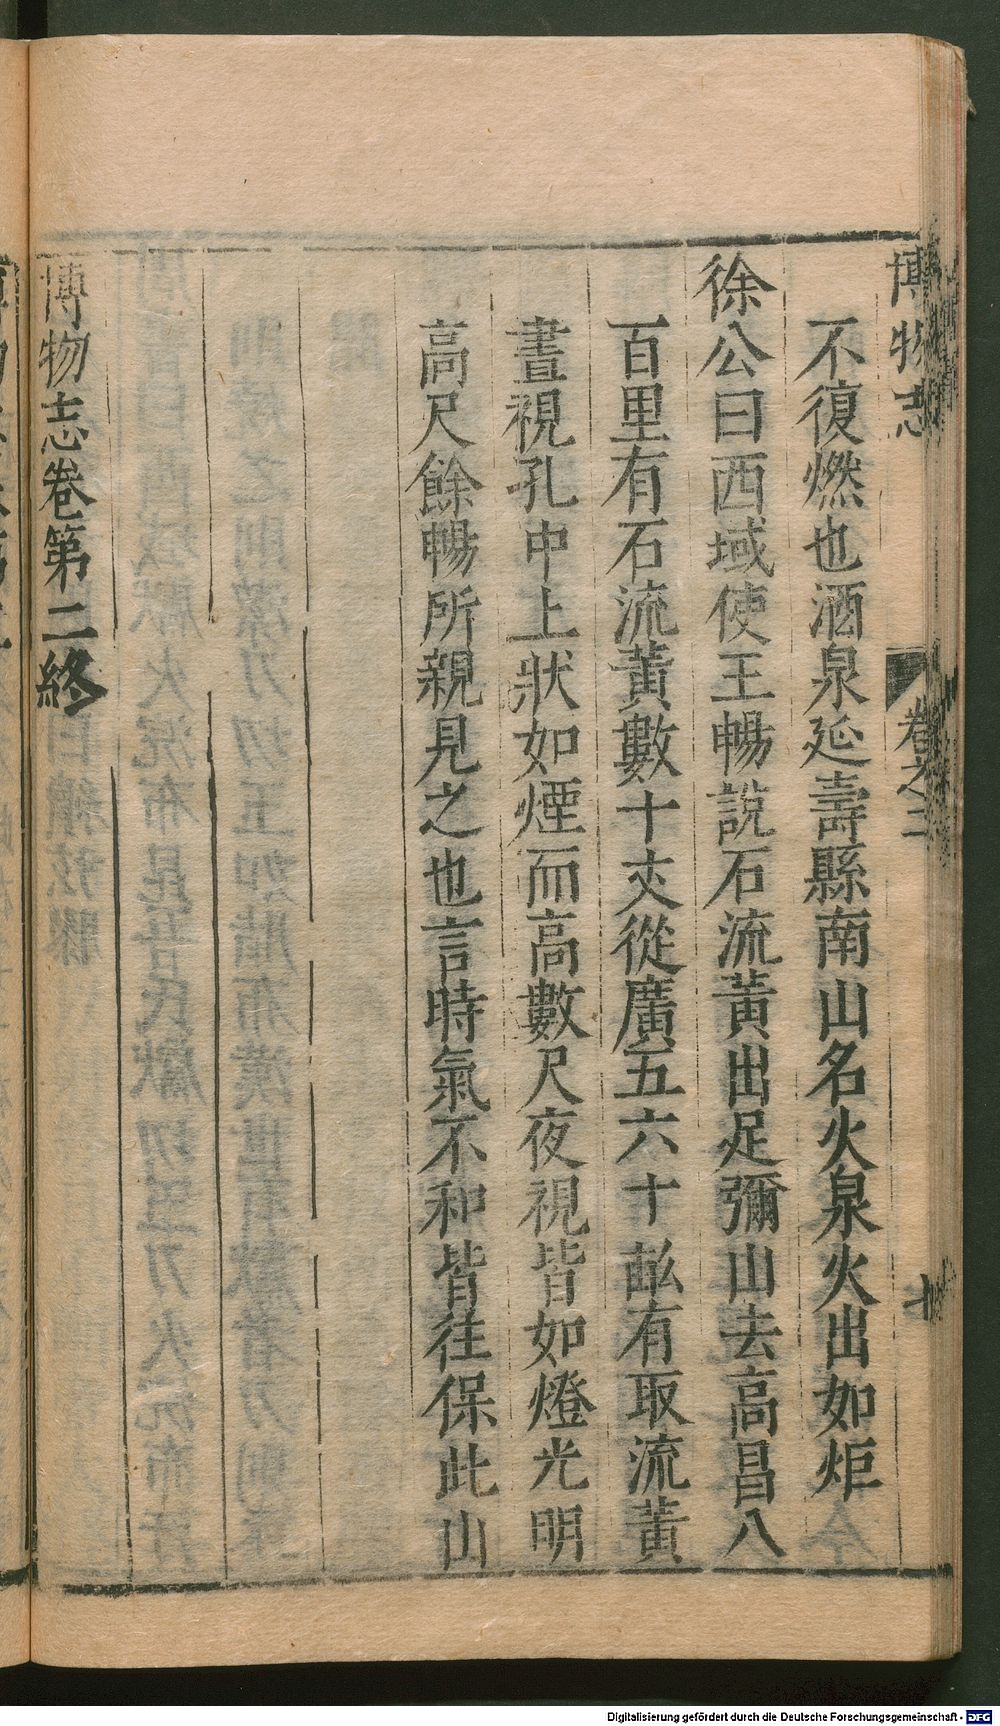 博物志
卷之二
不復燃也酒泉延壽縣南山名火泉火出如炬
徐公曰西域使王暢說石流黃出足彌山去高昌八
百里有石流黃數十丈從廣五六十畝有取流黃
晝視孔中上狀如煙而高數尺夜視皆如燈光明
高尺餘暢所親見之也言時氣不和皆往保此山
博物志卷第二終
Digitalisierung gefördert durch die Deutsche Forschungsgemeinschaft - DFG